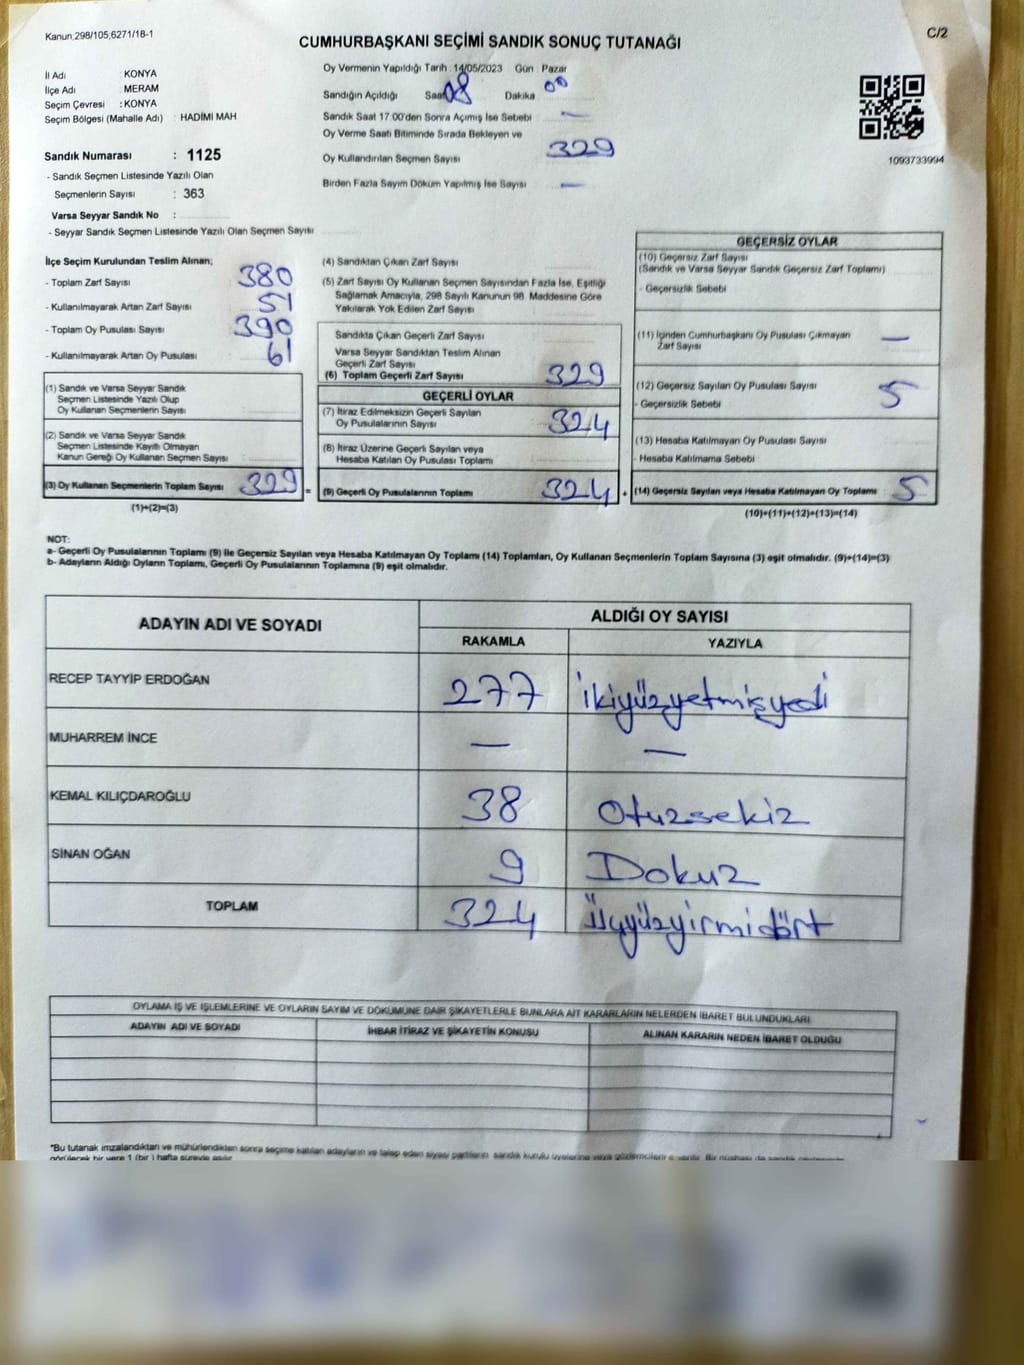 Kanun.298/105,6271/18-1
C/2
CUMHURBAŞKANI SEÇİMİ SANDIK SONUÇ TUTANAĞI
İl Adı : KONYA
İlçe Adı : MERAM
Seçim Çevresi : KONYA
Seçim Bölgesi (Mahalle Adı) : HADİMİ MAH
Sandık Numarası : 1125
- Sandık Seçmen Listesinde Yazılı Olan
Seçmenlerin Sayısı : 363
Varsa Seyyar Sandık No :
- Seyyar Sandık Seçmen Listesinde Yazılı Olan Seçmen Sayısı
Oy Vermenin Yapıldığı Tarih : 14/05/2023 Gün : Pazar
Sandığın Açıldığı Saat 08 Dakika 00
Sandık Saat 17.00'den Sonra Açımış İse Sebebi —
Oy Verme Saati Bitiminde Sırada Bekleyen ve
Oy Kullandırılan Seçmen Sayısı 329
Birden Fazla Sayım Döküm Yapılmış İse Sayısı —
1093733994
İlçe Seçim Kurulundan Teslim Alınan;
- Toplam Zarf Sayısı 380
- Kullanılmayarak Artan Zarf Sayısı 51
- Toplam Oy Pusulası Sayısı 390
- Kullanılmayarak Artan Oy Pusulası 61
(1) Sandık ve Varsa Seyyar Sandık
Seçmen Listesinde Yazılı Olup
Oy Kullanan Seçmenlerin Sayısı
(2) Sandık ve Varsa Seyyar Sandık
Seçmen Listesinde Kayıtlı Olmayan
Kanun Gereği Oy Kullanan Seçmen Sayısı
(3) Oy Kullanan Seçmenlerin Toplam Sayısı 329 =
(1)+(2)=(3)
(4) Sandıktan Çıkan Zarf Sayısı
(5) Zarf Sayısı Oy Kullanan Seçmen Sayısından Fazla İse, Eşitliği
Sağlamak Amacıyla, 298 Sayılı Kanunun 98. Maddesine Göre
Yakılarak Yok Edilen Zarf Sayısı
Sandıkta Çıkan Geçerli Zarf Sayısı
Varsa Seyyar Sandıktan Teslim Alınan
Geçerli Zarf Sayısı
(6) Toplam Geçerli Zarf Sayısı 329
GEÇERLİ OYLAR
(7) İtiraz Edilmeksizin Geçerli Sayılan
Oy Pusulalarının Sayısı 324
(8) İtiraz Üzerine Geçerli Sayılan veya
Hesaba Katılan Oy Pusulası Toplamı
(9) Geçerli Oy Pusulalarının Toplamı 324 +
GEÇERSİZ OYLAR
(10) Geçersiz Zarf Sayısı
(Sandık ve Varsa Seyyar Sandık Geçersiz Zarf Toplamı)
- Geçersizlik Sebebi
(11) İçinden Cumhurbaşkanı Oy Pusulası Çıkmayan
Zarf Sayısı —
(12) Geçersiz Sayılan Oy Pusulası Sayısı 5
- Geçersizlik Sebebi
(13) Hesaba Katılmayan Oy Pusulası Sayısı
- Hesaba Katılmama Sebebi
(14) Geçersiz Sayılan veya Hesaba Katılmayan Oy Toplamı 5
(10)+(11)+(12)+(13)=(14)
NOT:
a- Geçerli Oy Pusulalarının Toplamı (9) ile Geçersiz Sayılan veya Hesaba Katılmayan Oy Toplamı (14) Toplamları, Oy Kullanan Seçmenlerin Toplam Sayısına (3) eşit olmalıdır. (9)+(14)=(3)
b- Adayların Aldığı Oyların Toplamı, Geçerli Oy Pusulalarının Toplamına (9) eşit olmalıdır.
ADAYIN ADI VE SOYADI
ALDIĞI OY SAYISI
RAKAMLA YAZIYLA
RECEP TAYYİP ERDOĞAN 277 ikiyüzyetmişyedi
MUHARREM İNCE — —
KEMAL KILIÇDAROĞLU 38 Otuzsekiz
SİNAN OĞAN 9 Dokuz
TOPLAM 324 Üçyüzyirmidört
OYLAMA İŞ VE İŞLEMLERİNE VE OYLARIN SAYIM VE DÖKÜMÜNE DAİR ŞİKAYETLERLE BUNLARA AİT KARARLARIN NELERDEN İBARET BULUNDUKLARI
ADAYIN ADI VE SOYADI İHBAR İTİRAZ VE ŞİKAYETİN KONUSU ALINAN KARARIN NEDEN İBARET OLDUĞU
*Bu tutanak imzalandıktan ve mühürlendikten sonra seçime katılan adayların ve talep eden siyasi partilerin sandık kurulu üyelerine veya gözlemcilere verilir. Bir nüshası da sandık